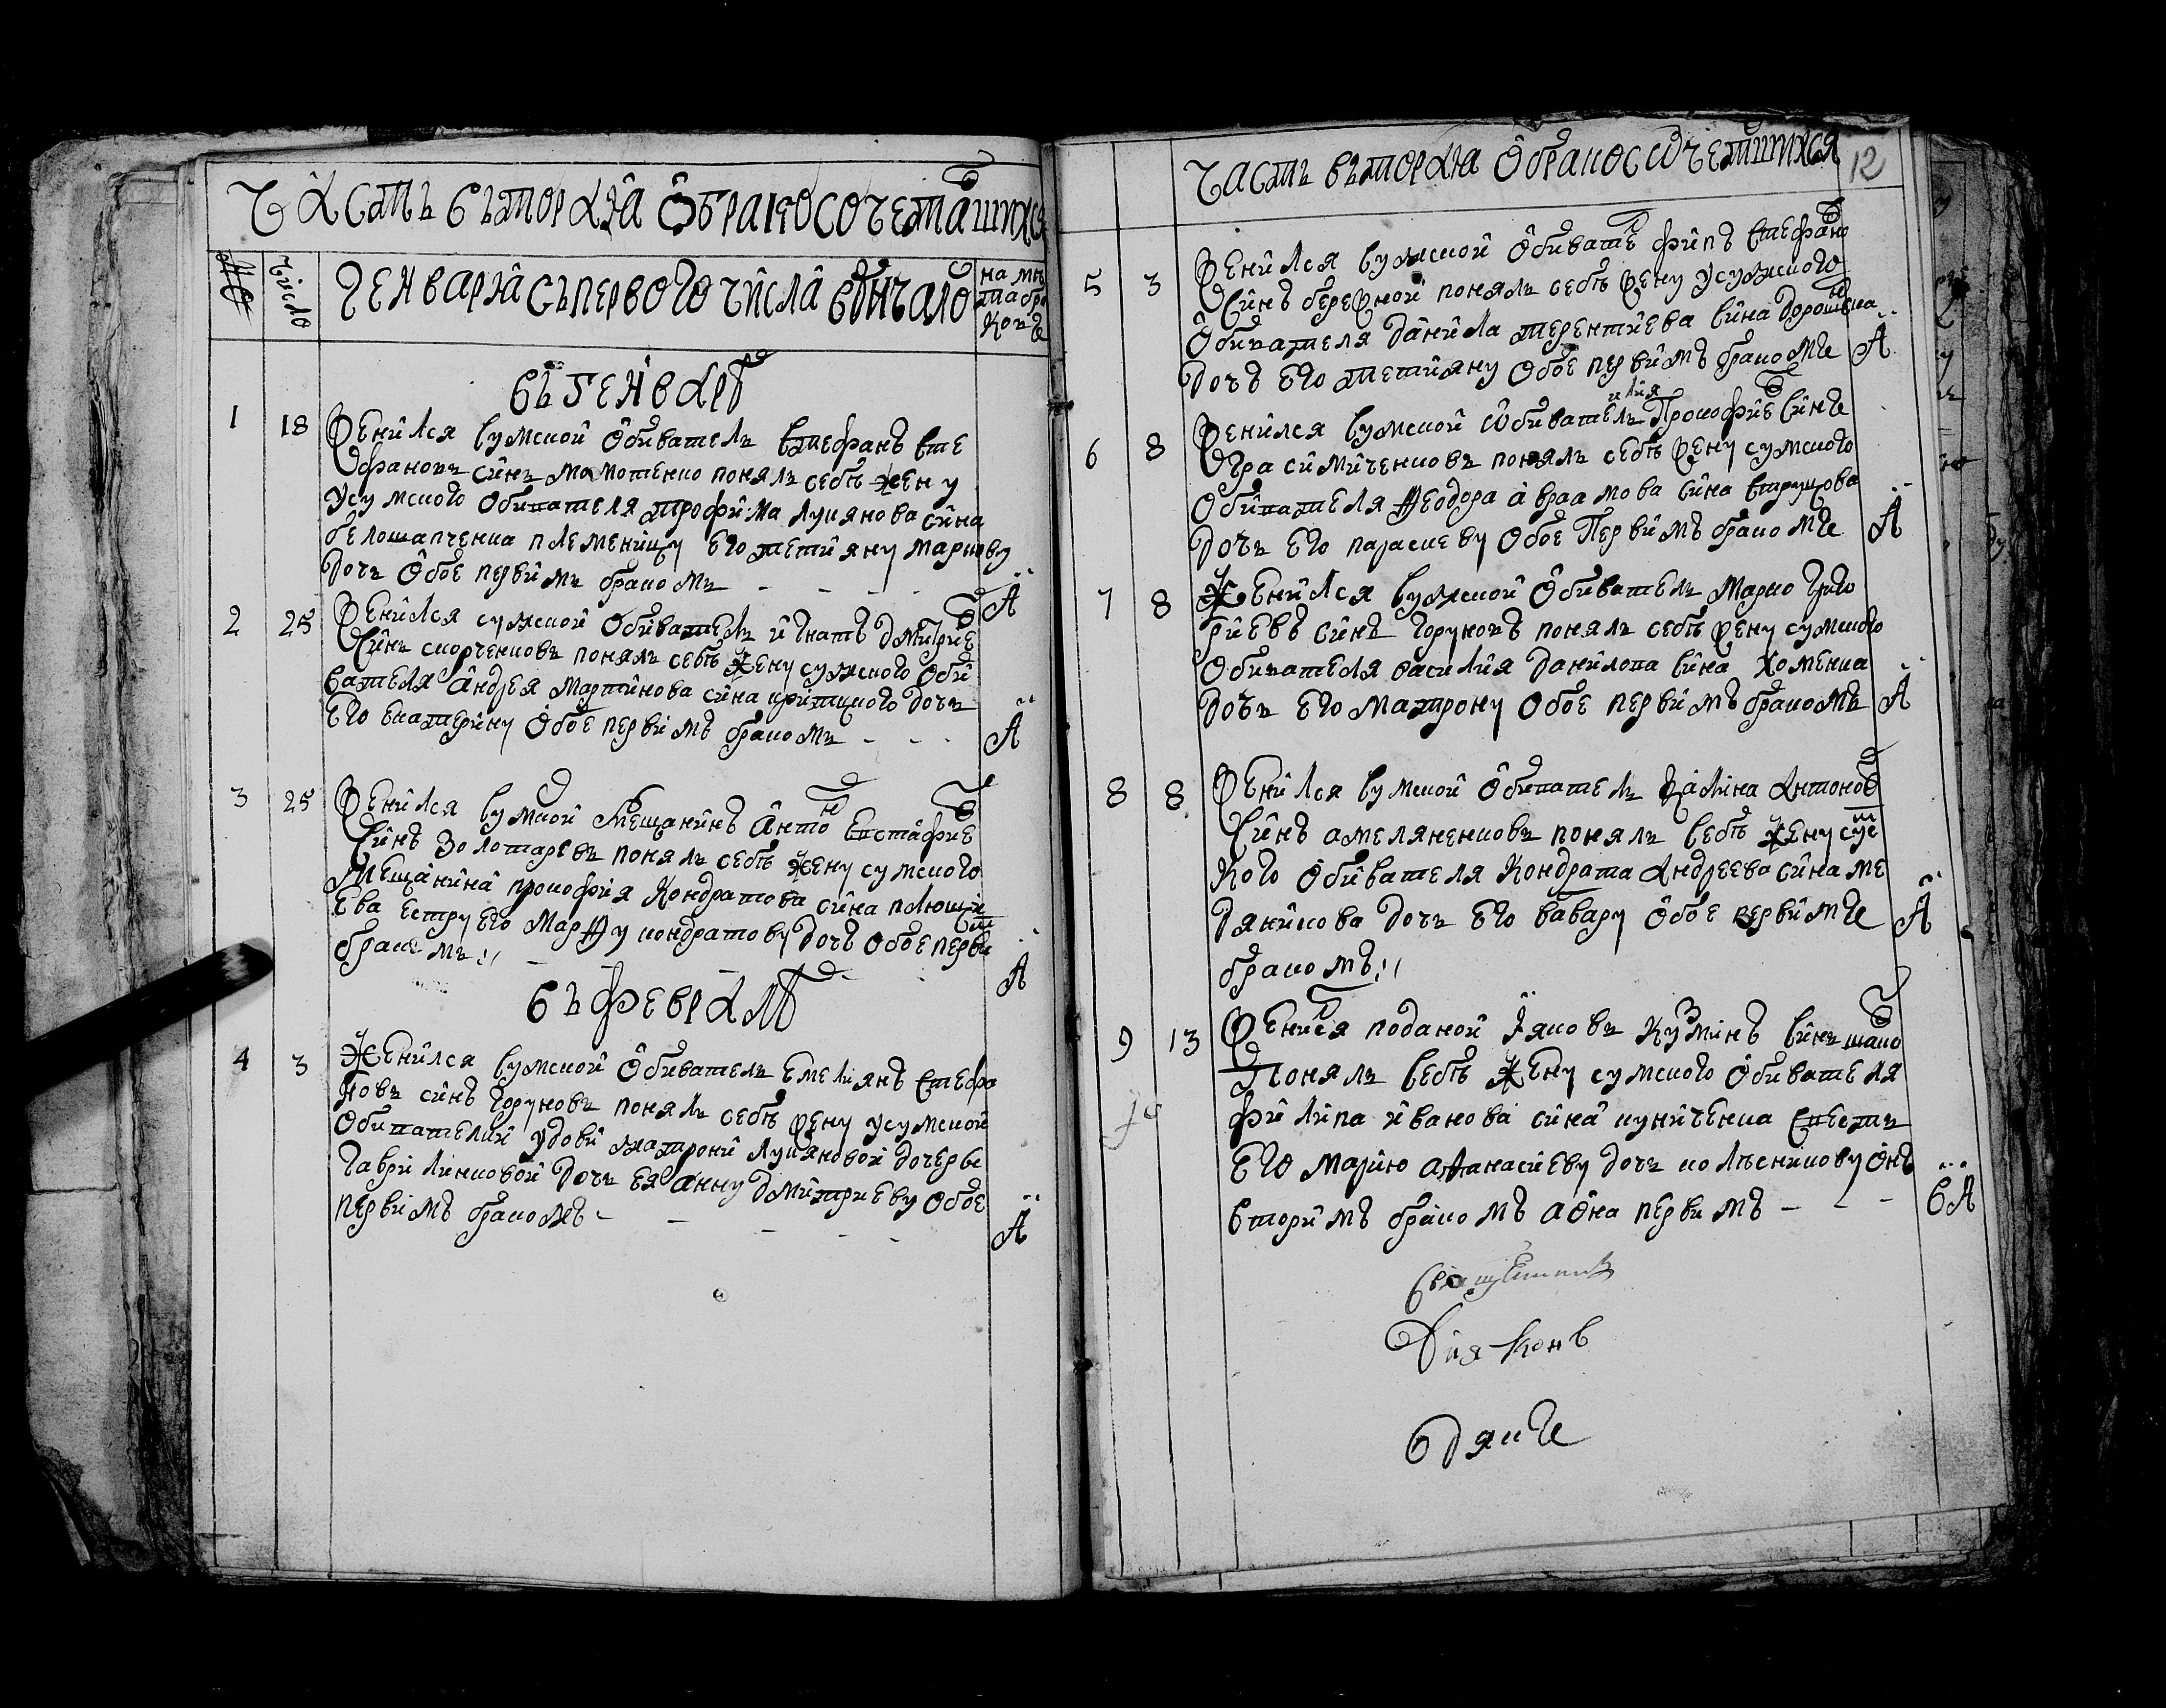 Часть вътораѧ ѡбракосочеташихся
№
число
генваря съ первого числа венчано
въ генварѣ
1 18 Женился сумской обиватель Стефанъ Сте
фановъ синъ Мамотенко понялъ себѣ жену
усумского обивателя трофима лукянова сина
белошапченка племеницу его тетияну маркову
дочъ обое первимъ бракомъ - - - - А
2 25 Женился сумской обиватель игнатъ дмитрие
синъ скорченковъ понялъ себѣ жену сумского оби
вателя андрея мартинова сина дочъ
его екатерину обое первимъ бракомъ - - - А
3 25 Женился сумской мещанинъ антонъ евстафие
синъ золотаревъ понялъ себѣ жену сумского
мещанина прокофия кондратова сина
ева сестру его марѳу кондратову дочъ обое перви
бракомъ А
въ февралѣ
4 3 Женился сумской обиватель емелиянъ стефа
новъ синъ горуновъ понялъ себѣ жену усумской
обивателки удови матрони лукяновой дочери
гавриленковой дочъ ея анну дмитриеву обое
первимъ бракомъ - - - - - А
Часть вътораѧ ѡбракосѡчеташихся 12
5 3 Женился сумской обивате филипъ стефано
синъ бережной понялъ себѣ жену усумского
обивателя данила терентиева сина дорошенка
дочъ его тетияну обое первимъ бракомъ А
6 8 Женился сумской ѡбиватель Прокофие синъ
герасимиченковъ понялъ себѣ жену сумского
обивателя ѳеодора авраамова сина
дочъ его параскеву обое первимъ бракомъ А
7 8 Женился сумской обиватель марко григо
риевъ синъ горуновъ понялъ себѣ жену сумского
обивателя василия данилова сина хоменка
дочъ его матрону обое первимъ бракомъ А
8 8 Женился сумской обиватель калина антонов
синъ омеляненковъ понялъ себѣ жену сумс
кого обивателя кондрата андреева сина ме
дяникова дочъ его вавару обое первимъ А
бракомъ
9 13 Женился поданой яковъ кузминъ синъ
понялъ себѣ жену сумского обивателя
филипа иванова сина куниченка
его марию аѳанасиеву дочъ колѣсникову онъ
вторимъ бракомъ аона первимъ - - - ВА
Священникъ
Дияконъ
Дякъ